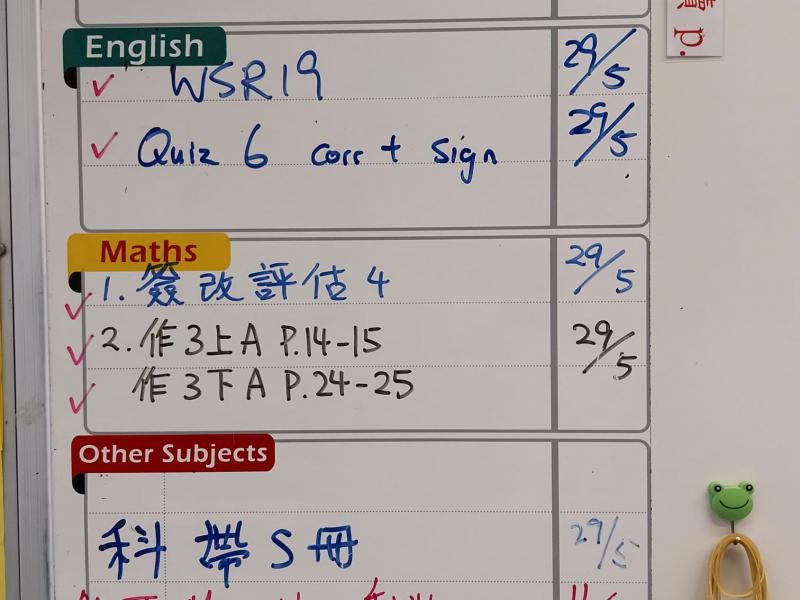 English
WSR19 29/5
Quiz 6 corr + sign 29/5
Maths
1. 簽改評估4 29/5
2. 作3上A P.14-15 29/5
作3下A P.24-25
Other Subjects
科 帶S冊 29/5